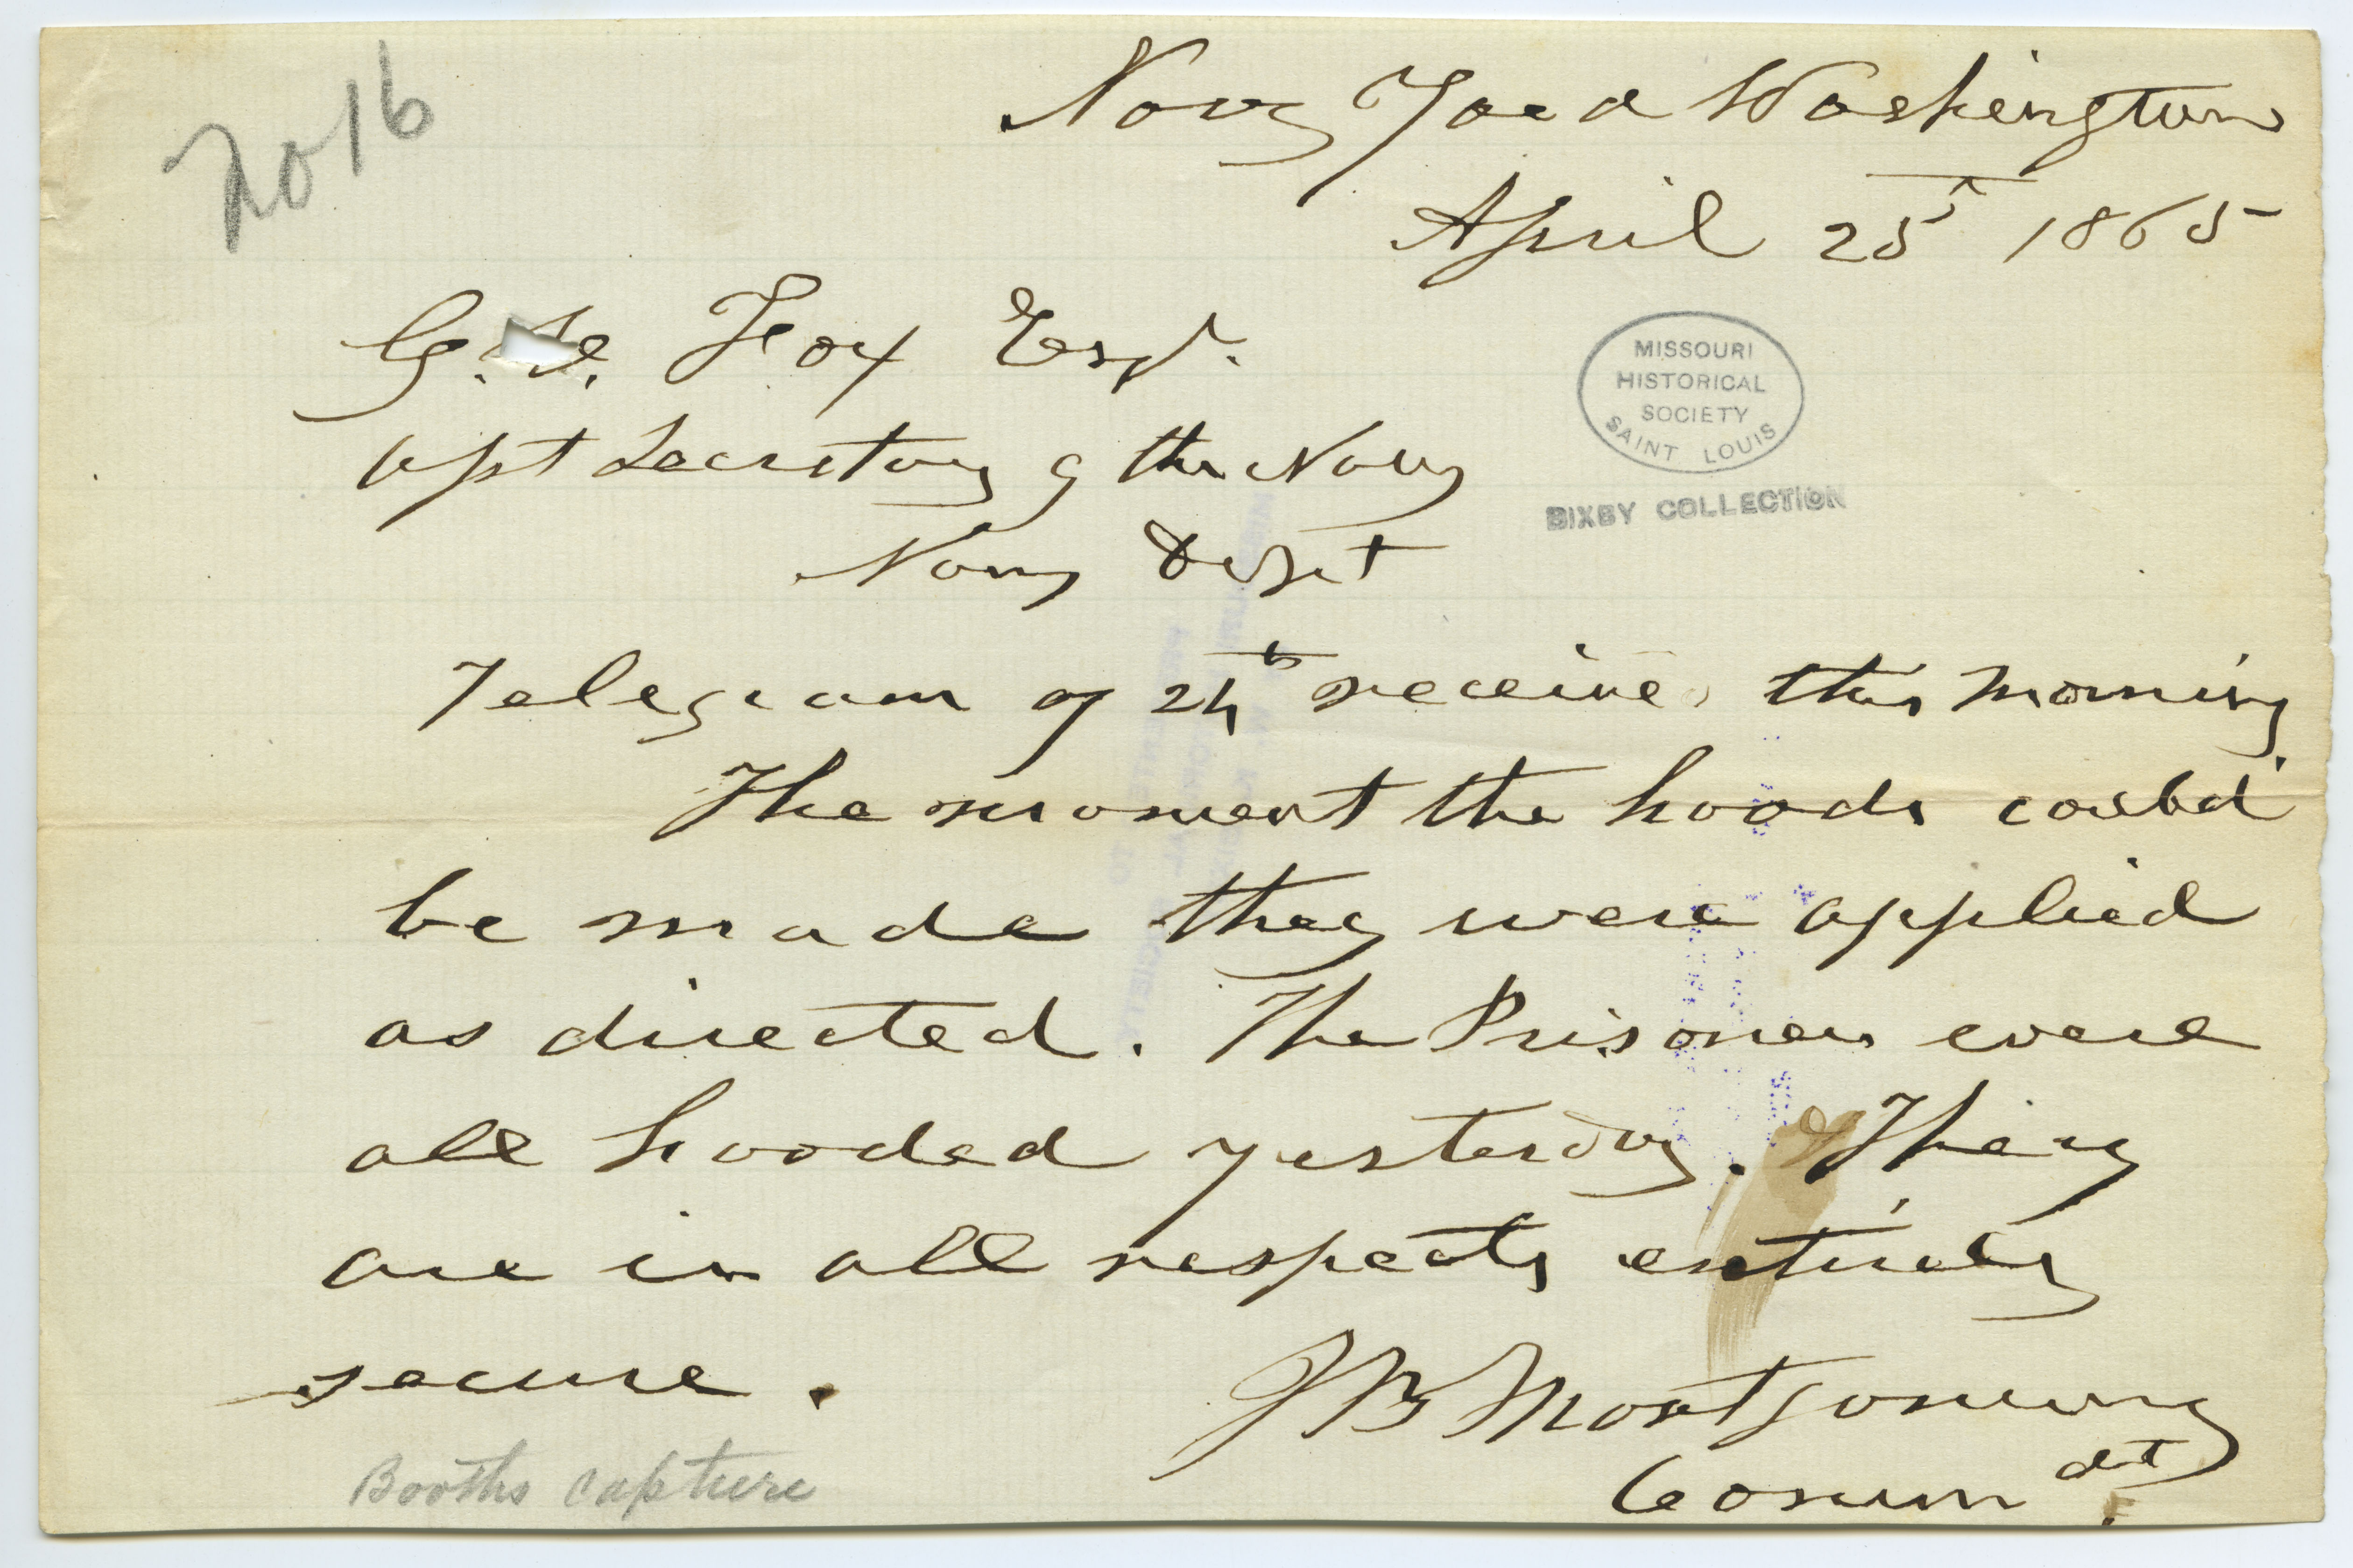 2016
Navy Yard Washington
April 25th 1865
G. V. Fox Esqr.
Asst Secretary of the Navy
Navy Dept
MISSOURI
HISTORICAL
SOCIETY
SAINT LOUIS
BIXBY COLLECTION
Telegram of 24th received this morning.
The moment the hoods could
be made they were applied
as directed. The Prisoners were
all hooded yesterday. They
are in all respects entirely
secure.
J B Montgomery
Commdt.
Booths capture